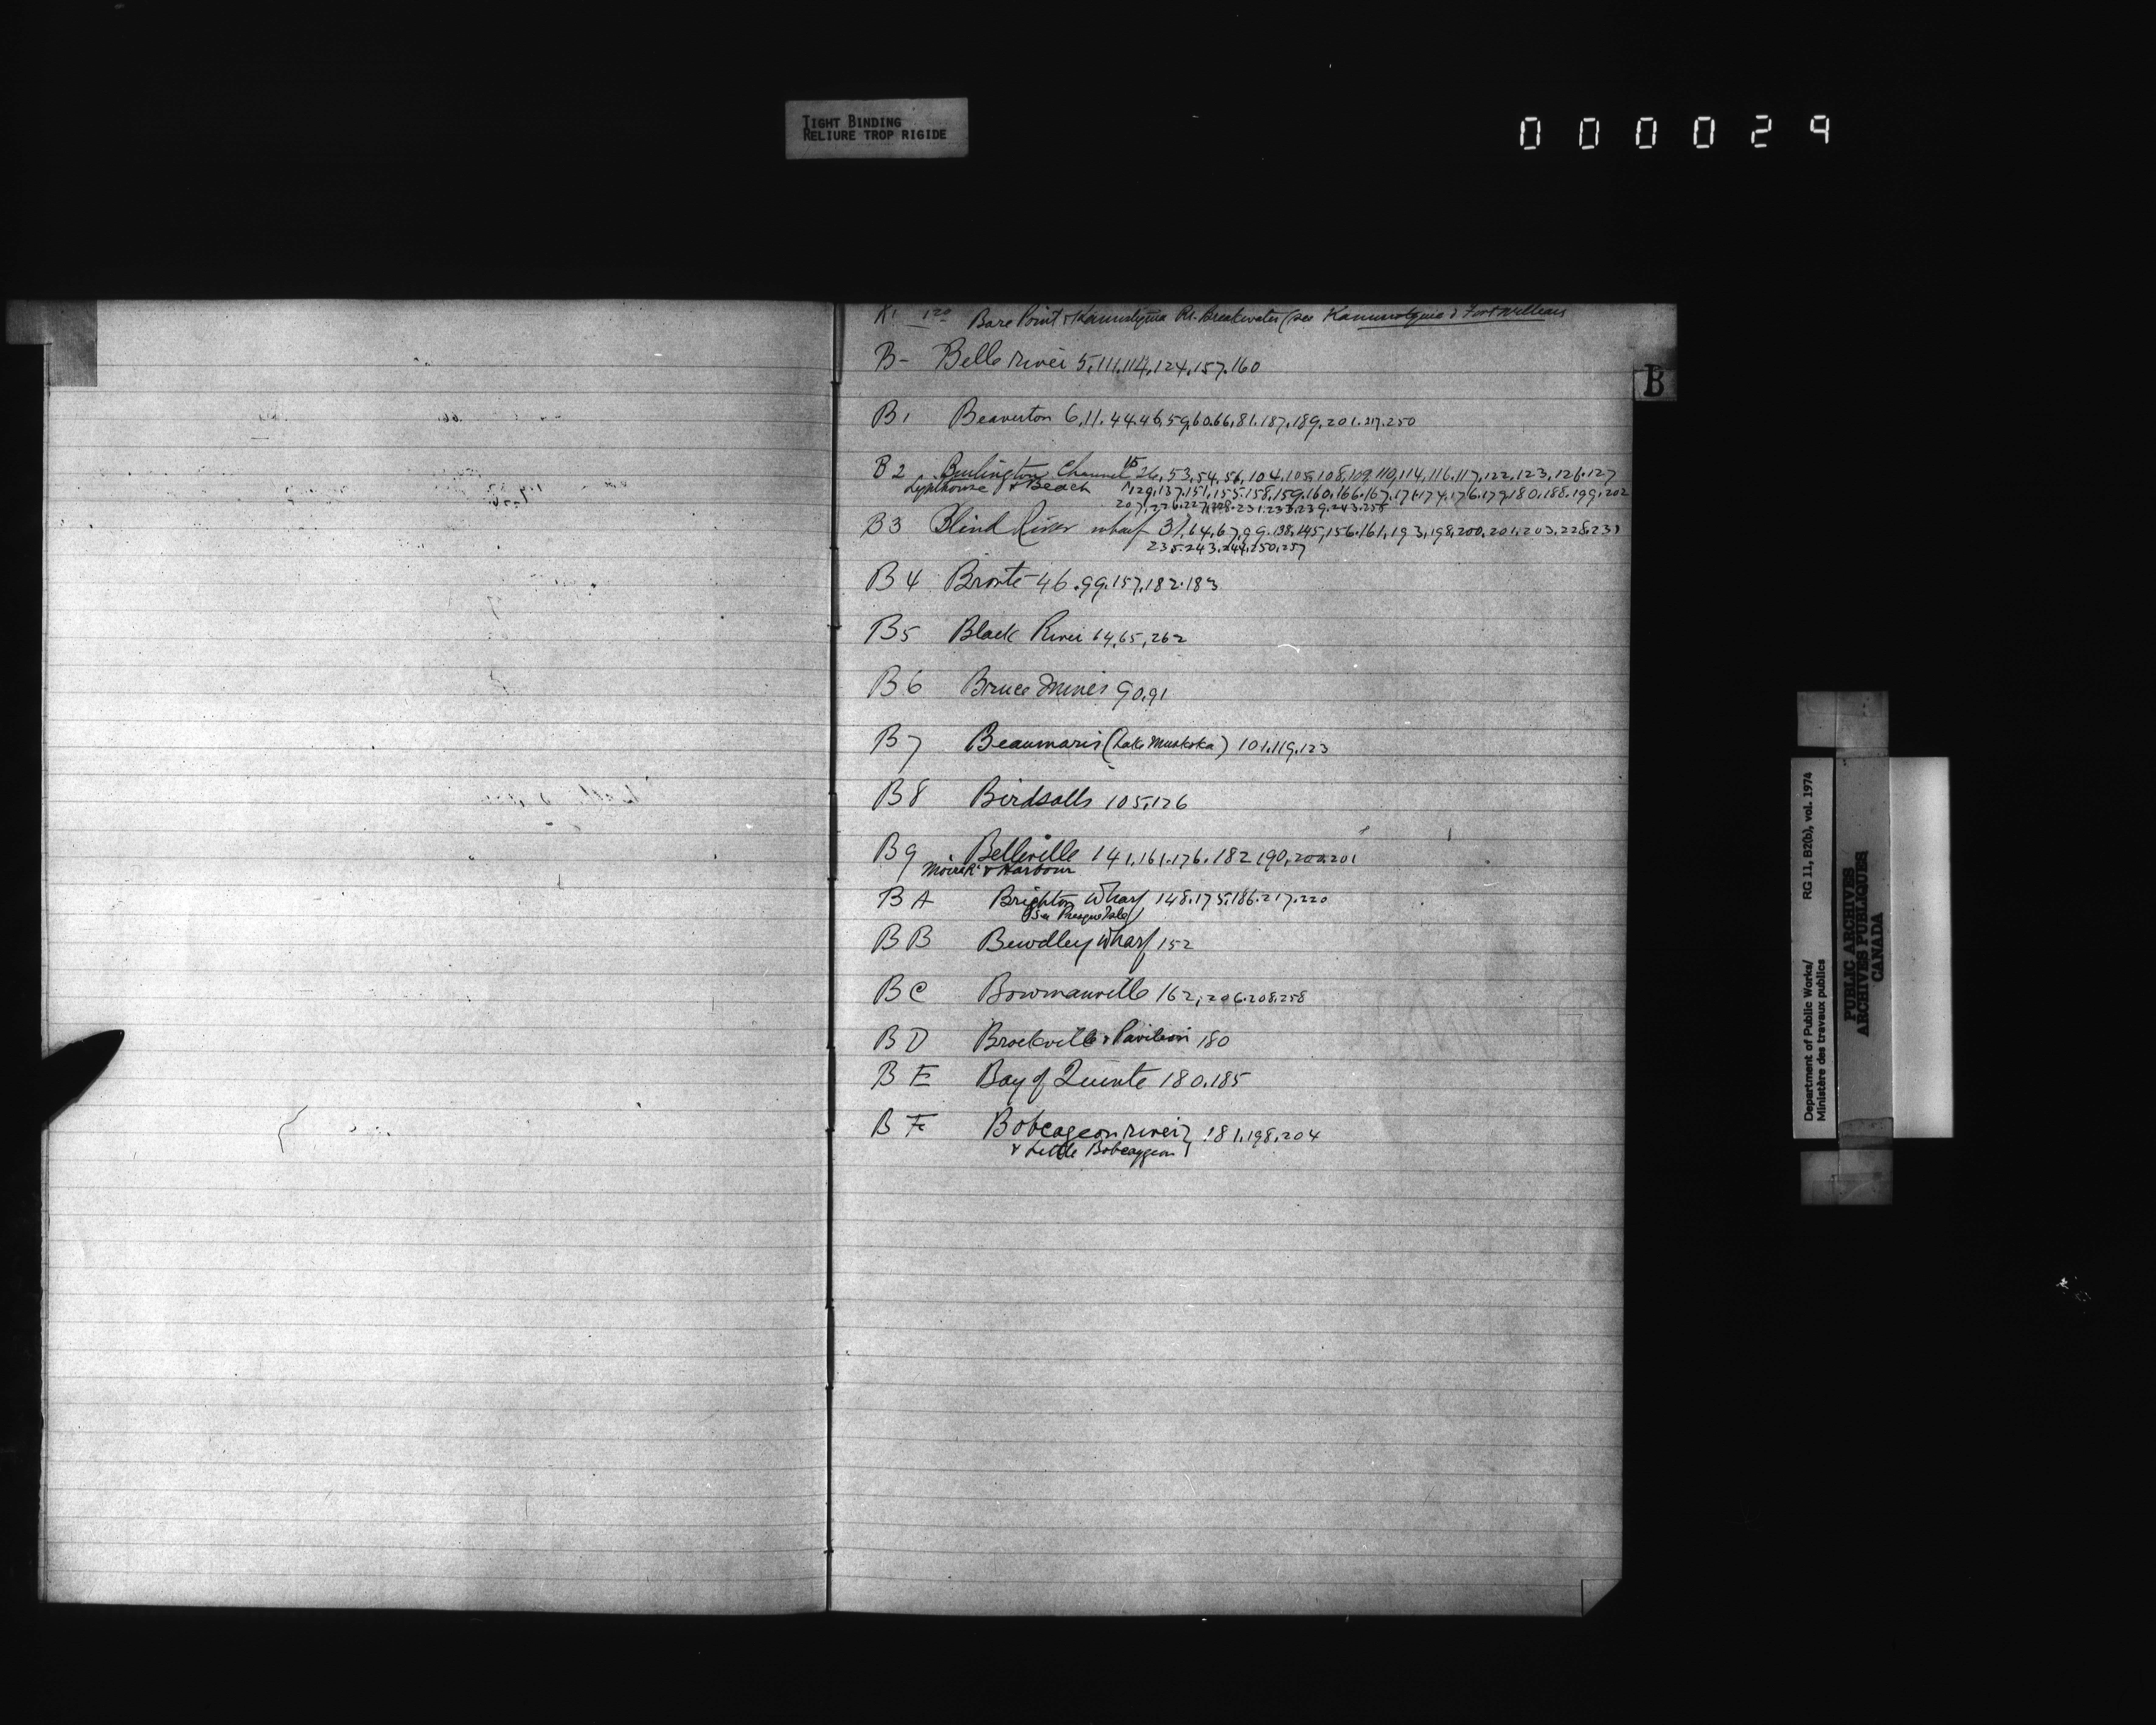 TIGHT BINDING
RELIURE TROP RIGIDE
000029
K1 120 Bare Point & Kaministiquia Rr. Breakwater (see Kaministiquia & Fort William
B
B- Belle River 5,111,114,124,157,160
B1 Beaverton 6,11.44.46,59,60.66,81.187,189,201.217.250
B2 Burlington Channel 15 26,53,54,56,104,105,108,109,110,114,116.117,122,123,126.127
Lighthouse & Beach 129,137,151,155.158,159,160,166.167,174,176.179,180,188.199,202
207,226.227,228.231.233.239.243.258
B3 Blind River wharf 31,64,67,99.138,145,156.161,193,198,200,201,203.228,231
235.243.244,250,257
B4 Bronte 46.99.157,182.183
B5 Black River 64,65,262
B6 Bruce Mines 90,91
B7 Beaumaris (Lake Muskoka) 101.119,123
B8 Birdsalls 105,126
B9 Belleville 141,161.176.182 190,200.201
Moira R & Harbour
BA Brighton Wharf 148.175,186.217.220
(See Presqu'Isle)
BB Bewdley Wharf 152
BC Bowmanville 162,206.208,258
BD Brockville & Pavilion 180
BE Bay of Quinte 180.185
BF Bobcageon river } 181,198,204
& Little Bobcaygeon }
Department of Public Works/ RG 11, B2(b), vol. 1974
Ministère des travaux publics
PUBLIC ARCHIVES
ARCHIVES PUBLIQUES
CANADA